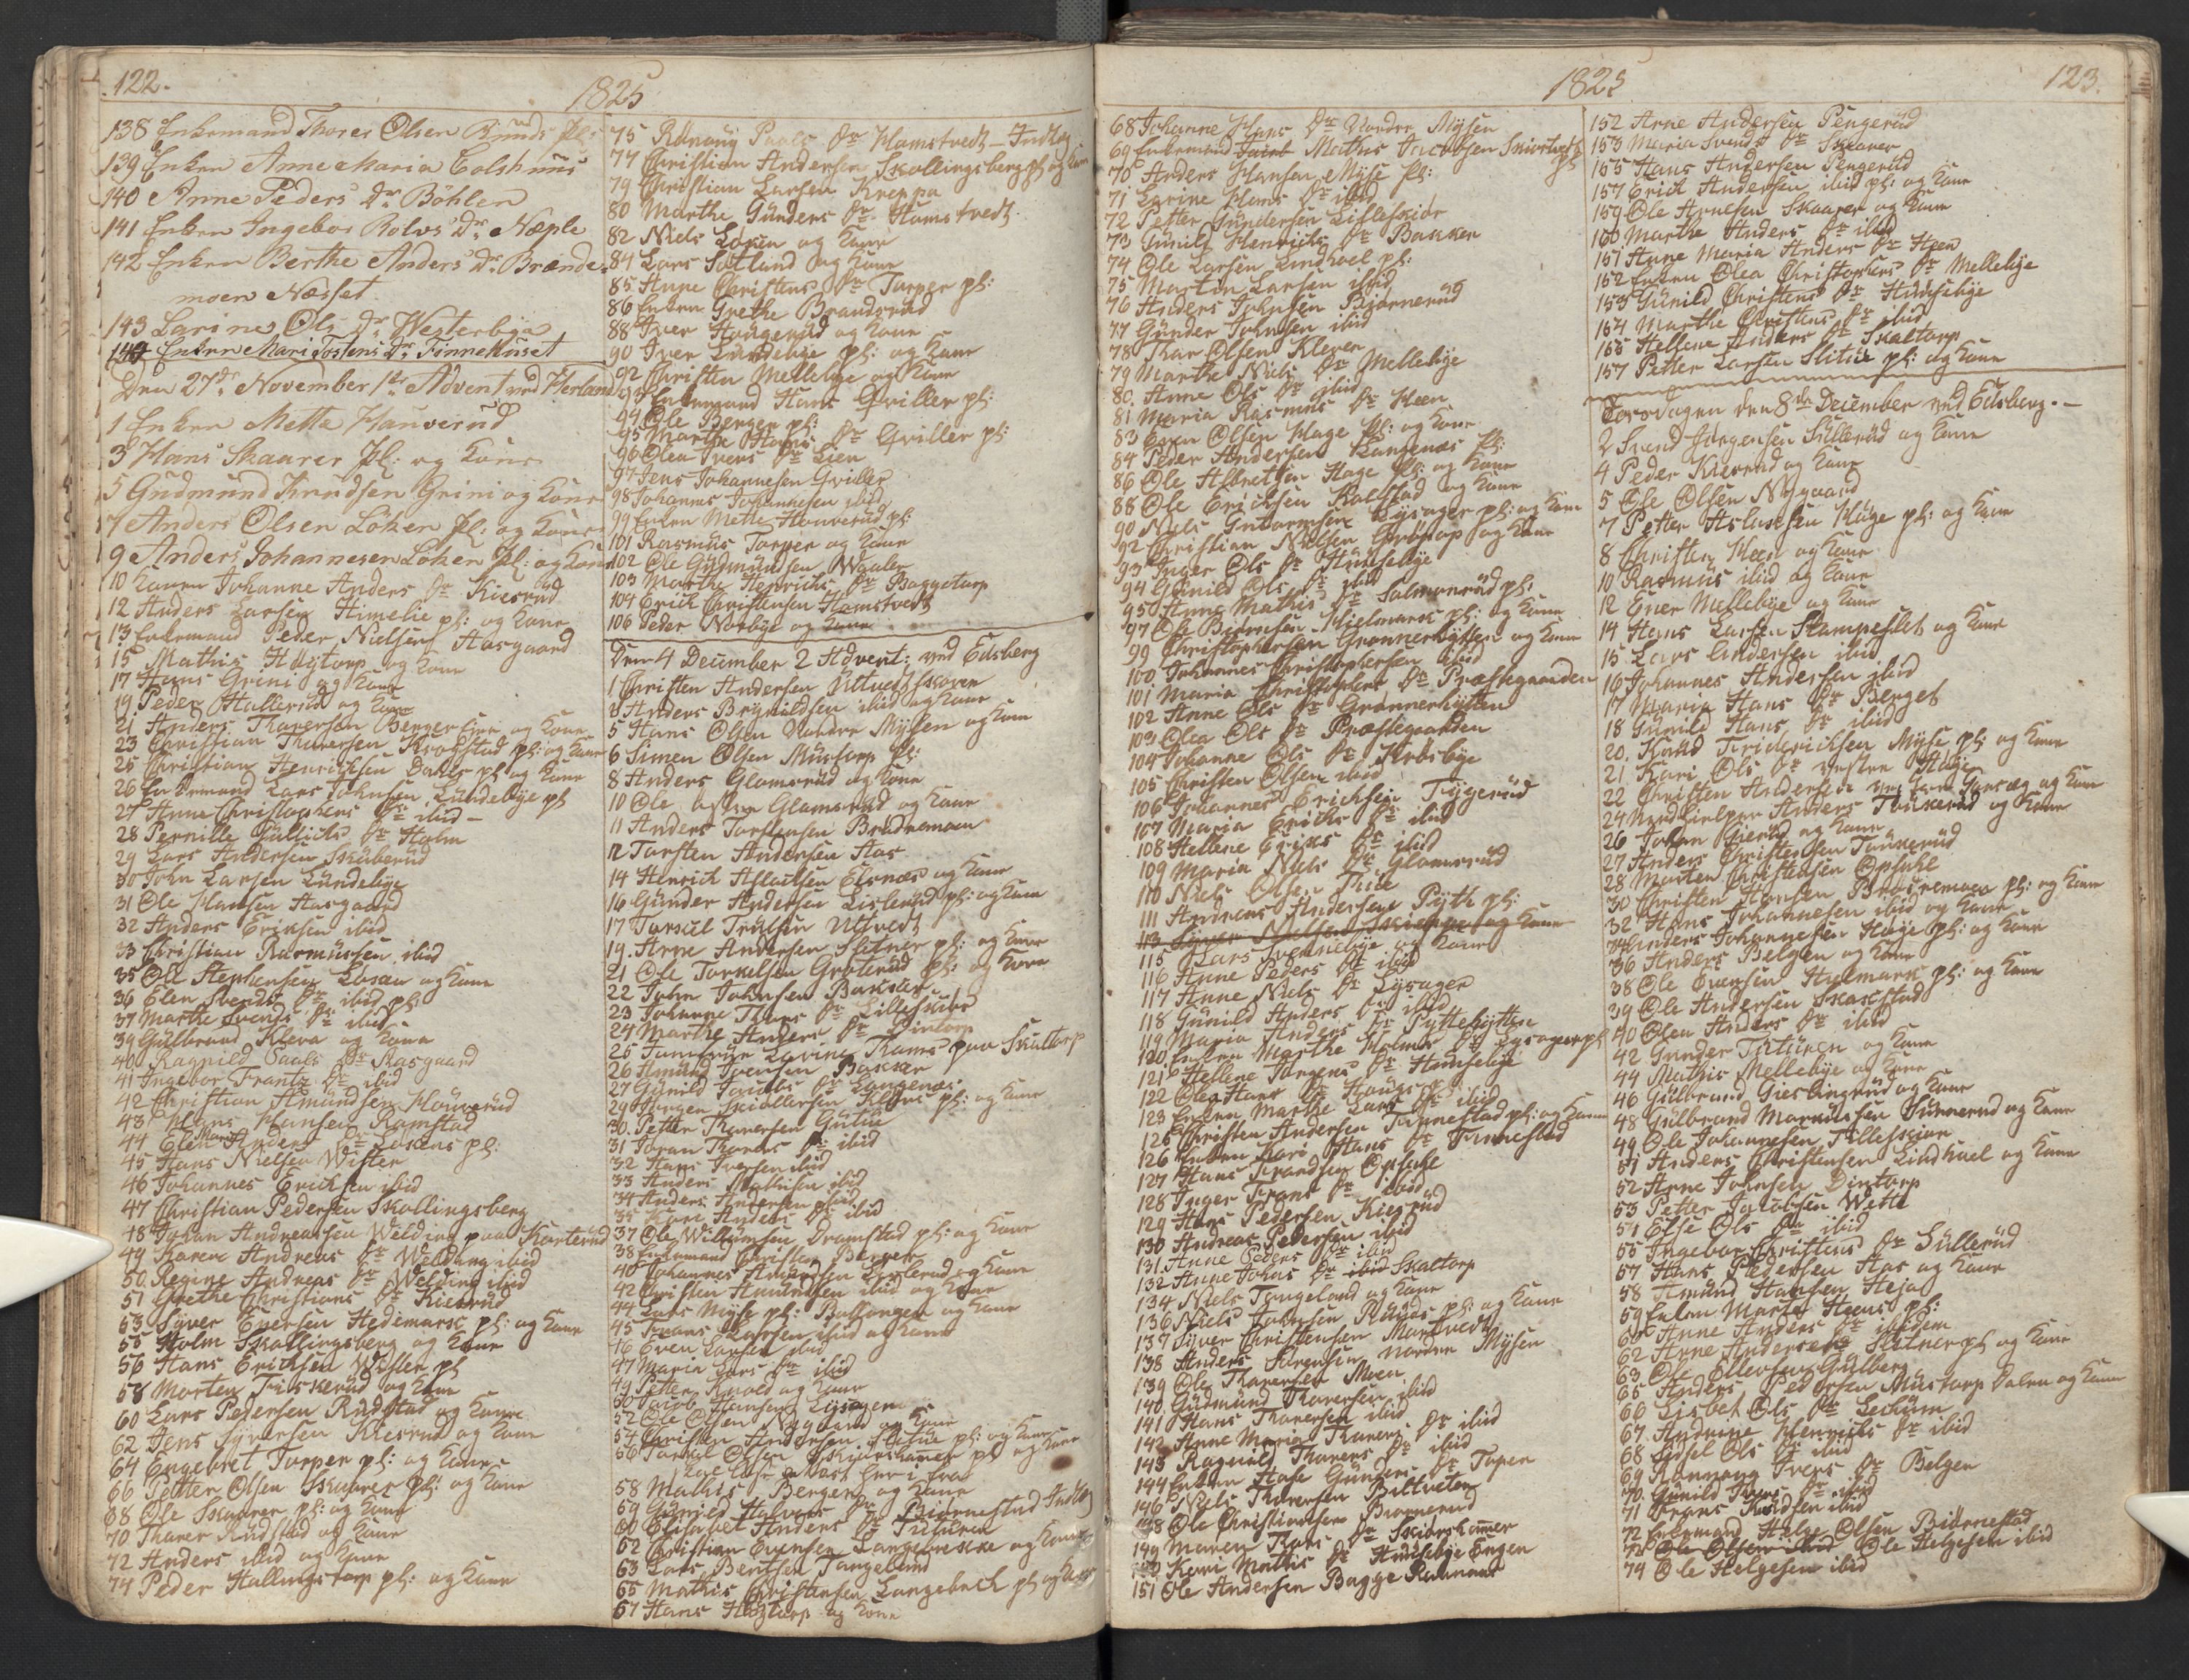 122.
1825
138 Enkemand Thores Olsen Pl:
139 Enken Anne Maria Colshuus
140 Anne Peders Dr Böhlen
141 Enken Ingebor Rolvs Dr Næple
142 Enken Berthe Anders Dr Brænde
moen Næsset
143 Larine Ols Dr Westerbye
144 Enken Mari Tostens Dr Finnehuset
Den 27de November 1ste Advent ved Herland
1 Enken Mette Hauverud
3 Hans Skaarer Pl: og Kone
5 Gudmund Knudsen Grini og Kone
7 Anders Olsen Löken Pl: og Kone
9 Anders Johannesen Löken Pl: og Kone
10 Konen Johanne Anders Dr Kierud
12 Anders Larsen Himelie pl: og Kone
13 Enkemand Peder Nielsen Aasgaard
15 Mathis Høytorp og Kone
17 Hans Grini og Kone
19 Peder Hallerud og Kone
21 Anders Thoresen og Kone
23 Christian Thoresen Krogstad pl: og Kone
25 Christian Henrichsen pl og Kone
26 Enkemand Lars Johnsen Lundebye pl
27 Anne Christophers Dr ibid
28 Pernille Gullichs Dr Holm
29 Lars Andersen Skuberud
30 John Larsen Lundebye
31 Ole Hansen Aasgaard
32 Anders Eriksen ibid
33 Christian Rasmussen ibid
35 Ole Stephensen og Kone
36 Elen Svends Dr ibid pl
37 Marthe Svends Dr ibid
39 Gulbrand Kleva og Kone
40 Ragnild Paals Dr Aasgaard
41 Ingebor Frantz Dr ibid
42 Christian Amundsen Houverud
43 Hans Hansen Ramstad
44 Elen Anders Dr pl:
45 Hans Nielsen Wister
46 Johannes Ericksen ibid
47 Christian Pedersen Skollingsberg
48 Johan Andreassen Welding paa Karterud
49 Karen Andreas Dr Welding ibid
50 Regine Andreas Dr Welding ibid
51 Grethe Christians Dr Kierud
53 Syver Evensen Hedemark pl: og Kone
55 Holm Skallingsberg og Kone
56 Hans Erichsen pl
58 Morten Fiskerud og Kone
60 Lars Pedersen Rudstad og Kone
62 Jens Syversen og Kone
64 Engebret Torper pl: og Kone
66 Petter Olsen Skaarer pl: og Kone
68 Ole Skaarer pl: og Kone
70 Thorer Rudstad og Kone
72 Anders ibid og Kone
74 Peder Hallingstorp pl: og Kone
75 Rønnoug Paals Dr Hamstvedt - Indlæg
77 Christian Andersen Skollingsberg pl og Kone
79 Christian Larsen Kreppa
80 Marthe Gunders Dr Hamstvedt
82 Niels Løken og Kone
84 Lars Søtlund og Kone
85 Anne Christens Dr Torper pl:
86 Enken Grethe Brandsrud
88 Iver Hougerud og Kone
90 Iver Lundebye pl: og Kone
92 Christen Mellebye og Kone
93 Enkemand Hans Gviller pl:
94 Ole Berger pl:
95 Marthe Hans Dr Gviller pl:
96 Olea Ivers Dr Lien
97 Jens Johannesen Gviller
98 Johannes Johannesen ibid
99 Enken Mette Houverud pl:
101 Rasmus Torper og Kone
102 Ole Gudmundsen Waaler
103 Marthe Henrichs Dr Baggetorp
104 Erich Christensen Hamstvedt
106 Peder Norbye og Kone
Den 4 December 2 Advent: ved Edsberg
1 Christen Andersen Ultvedtskoven
3 Anders Brynildsen ibid og Kone
5 Hans Olsen Nordre Mysen og Kone
6 Simen Olsen Mustorp pl:
8 Anders Glomsrud og Kone
10 Ole Glomsrud og Kone
11 Anders Torstensen Brudremoen
12 Torsten Andersen Aas
14 Henrich Aslacksen Elsnæs og Kone
16 Gunder Andersen Lislerud pl: og Kone
17 Torkul Trulsen Ultvedt
19 Arne Andersen Sletner pl: og Kone
21 Ole Torkelsen Grøterud pl: og Kone
22 John Johnsen Bakker
23 Johanne Thors Dr Lilleskiør
24 Marthe Anders Dr Dintorp
25 Jomfrue Larine Thoms paa Skultorp
26 Amund Iversen Bakker
27 Gunild Jacobs Dr Langenæs
29 Jørgen pl: og Kone
30 Petter Thoresen Gutue
31 Joran Thores Dr ibid
32 Hans Iversen ibid
33 Anders Mathisen ibid
34 Anders Andersen ibid
35 Kari Anders Dr ibid
37 Ole Wilhelmsen Dramstad pl: og Kone
38 Enkemand Christian Berger
40 Johannes Amundsen Lislerud og Kone
42 Christen Amundsen ibid og Kone
44 Lars Myse pl: Ballangen og Kone
45 Frans Larsen ibid og Kone
46 Even Larsen ibid
47 Maria Lars Dr ibid
49 Petter og Kone
50 Jacob Hansen Lysager
52 Ole Olsen Nygaard og Kone
54 Christen Andersen pl: og Kone
56 Torkel Olsen pl og Kone
58 Mathis Bergen og Kone
59 Gunild Halvors Dr Biørnestad Indlæg
60 Elisabet Anders Dr Tuturen
62 Christian Evensen Langebrekke og Kone
63 Lars Bentsen Tangeland
65 Mathis Christensen Langebrek pl og Kone
67 Hans Høytorp og Kone
1825
123.
68 Johanne Hans Dr Nordre Mysen
69 Enkemand Mathis Jacobsen Skiortvedt pl
70 Anders Hansen Myse pl:
71 Larine Hans Dr ibid
72 Petter Gundersen Lilleskiør
73 Gunild Henrichs Dr Bakker
74 Ole Larsen Lindhoel pl:
75 Martin Larsen ibid
76 Anders Johnsen Biørnerud
77 Gunder Johnsen ibid
78 Thor Olsen Kleven
79 Marthe Niels Dr Mellebye
80 Anne Ols Dr ibid
81 Maria Rasmus Dr Heen
83 Even Olsen Hage pl: og Kone
84 Peder Andersen Langenæs pl:
86 Ole Albretsen Hage pl: og Kone
88 Ole Ericksen Kalstad og Kone
90 Niels Guttormsen Lysager pl: og Kone
92 Christian Nielsen Grøstop og Kone
93 Inger Ols Dr Hunsebye
94 Gunild Ols Dr ibid
95 Anne Mathis Dr Salmonrud pl:
97 Ole Biørnsen Hielmark pl: og Kone
99 Christophersen Grønnerhytten og Kone
100 Johannes Christophersen ibid
101 Maria Christophers Dr Præstegaarden
102 Anne Ols Dr Grønnerhytten
103 Olea Ols Dr Præstegaarden
104 Johanne Ols Dr Krosbye
105 Christen Olsen ibid
106 Johannes Ericksen Tyggerud
107 Maria Erichs Dr ibid
108 Hellene Erichs Dr ibid
109 Maria Niels Dr Glomsrud
110 Niels Olsen Frue
111 Andreas Andersen Pyth pl:
113 Syver Nielsen Skieppe og Kone
115 Lars Svennebye og Kone
116 Anne Peders Dr ibid
117 Anne Niels Dr Lysager
118 Gunild Anders Dr ibid
119 Maria Anders Dr Pyttehytten
120 Enken Marthe Holmes Dr Lysager pl
121 Hellene Jørgens Dr Hunsebye
122 Olea Hans Dr Haugs
123 Enken Marthe Lars Dr ibid
125 Christen Andersen Finnestad pl: og Kone
126 Enken Kari Hans Dr Finnestad
127 Hans Frandsen Opsahl
128 Inger Frans Dr ibid
129 Hans Pedersen Kiesrud
130 Andreas Pedersen ibid
131 Anne Peders Dr ibid
132 Anne Johns Dr ibid Skaltorp
134 Niels Tangeland og Kone
136 Niels Johnsen Ruuds pl: og Kone
137 Syver Christensen Mortvedt
138 Anders Sørensen Nordre Mysen
139 Ole Thoresen Moen
140 Gudmund Thoresen ibid
141 Hans Thoresen ibid
142 Anne Maria Thorers Dr ibid
143 Ragnild Thorers Dr ibid
144 Enken Aase Gunders Dr Toper
146 Niels Thoresen Biltveten
148 Ole Christiansen Biørnerud
149 Maren Dr
150 Kari Mathis Dr Hunsebye Engen
151 Ole Andersen Bagge
152 Arne Andersen Pengerud
153 Maria Svends Dr Skaarer
155 Hans Andersen Pengerud
157 Erich Andersen ibid pl: og Kone
159 Ole Arnesen Skaarer og Kone
160 Marthe Anders Dr ibid
151 Anne Maria Anders Dr Heen
152 Enken Olea Christophers Dr Mellebye
153 Gunild Christens Dr Hunsebye
154 Marthe Christens Dr ibid
155 Hellene Anders Dr Skaltorp
157 Petter Larsen Slitue pl: og Kone
Torsdagen den 8de December ved Edsberg.
2 Svend Jørgensen Sullerud og Kone
4 Peder Kierud og Kone
5 Ole Olsen Nygaard
7 Petter Aslacksen Hage pl: og Kone
8 Christen Heen og Kone
10 Rasmus ibid og Kone
12 Even Mellebye og Kone
14 Hans Larsen Stampeflet og Kone
15 Lars Andersen ibid
16 Johannes Andersen ibid
17 Maria Hans Dr Berget
18 Gunild Hans Dr ibid
20 Knud Friderichsen Myse pl: og Kone
21 Kari Ols Dr
22 Christen Andersen og Kone
24 Anders Tunkerud og Kone
26 Johan og Kone
27 Anders Christensen Tunkerud
28 Morten Christensen Opsahl
30 Christen Hansen Brudremoen pl: og Kone
32 Hans Johannesen ibid og Kone
34 Anders Johannesen Hage pl: og Kone
36 Anders Belgen og Kone
38 Ole Evensen Hielmark pl: og Kone
39 Ole Andersen Skakestad
40 Olea Anders Dr ibid
42 Gunder Tuturen og Kone
44 Mathis Mellebye og Kone
46 Gulbrand Gieslingrud og Kone
48 Gulbrand Markussen Sunnerud og Kone
49 Ole Johannesen Lilleskiør
51 Anders Christensen Lindhoel og Kone
52 Arne Johnsen Dintorp
53 Petter Jacobsen Wette
54 Else Ols Dr ibid
55 Ingebor Christens Dr Sullerud
57 Hans Pedersen Aas og Kone
58 Amund Hansen Heja
59 Enken Marte Heens pl:
60 Anne Anders Dr ibidem
62 Arne Andersen Sletner pl og Kone
63 Ole Ellevsen Gulberg
65 Anders Pedersen Mustorp Dalen og Kone
66 Lisbet Ols Dr Lekum
67 Andrine Henrichs Dr ibid
68 Sidsel Ols Dr ibid
69 Rønnoug Ivers Dr Belgen
70 Gunild Ivers Dr ibid
71 Frans Knudsen ibid
72 Enkemand Helge Olsen Biørnestad
73 Ole Olsen ibid Ole Helgesen ibid
74 Ole Helgesen ibid